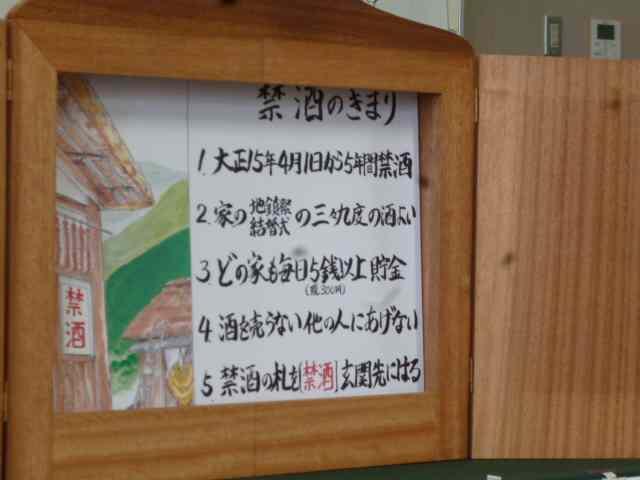 禁酒のきまり
1. 大正15年4月1日から5年間禁酒
2. 家の地鎮祭結婚式の三々九度の酒はよい
3 どの家も毎日5銭以上貯金
(現300円)
4 酒を売らない他の人にあげない
5. 禁酒の札を[禁酒]玄関先にはる
禁酒